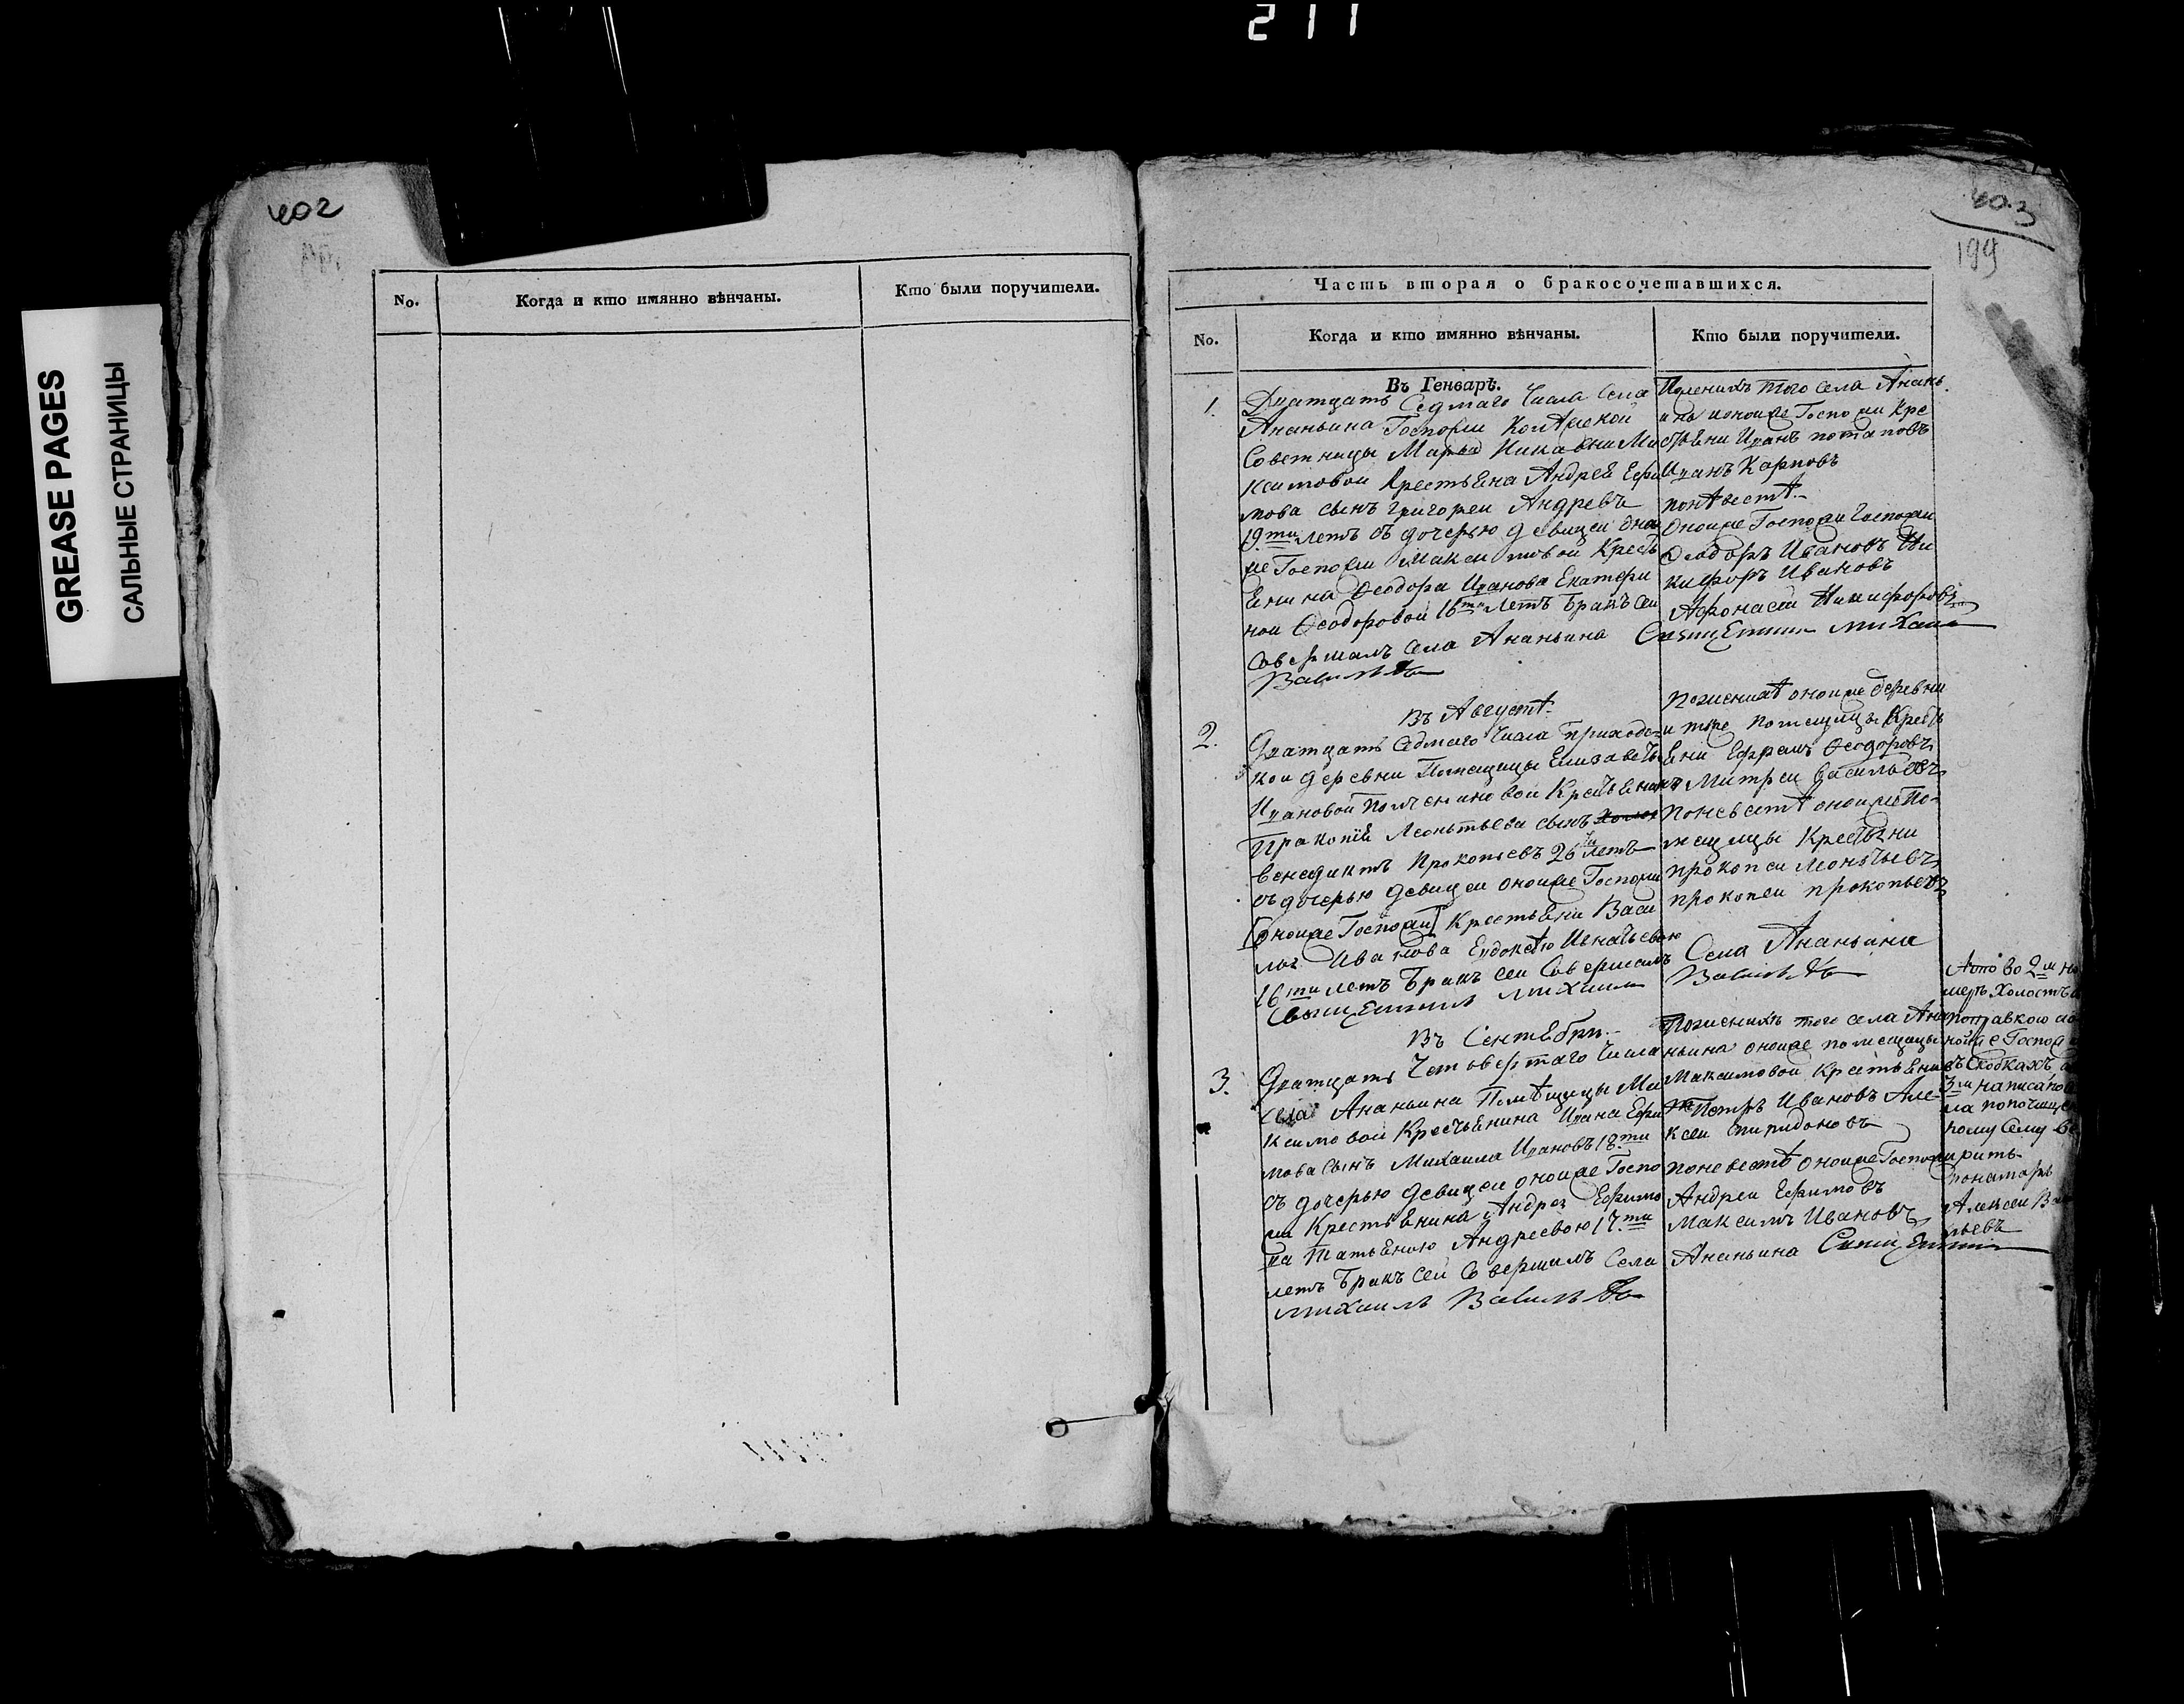 211
GREASE PAGES
САЛЬНЫЕ СТРАНИЦЫ
402
No.
Когда и кто имянно вѣнчаны.
Кто были поручители.
403
199
Часть вторая о бракосочетавшихся.
No.
Когда и кто имянно вѣнчаны.
Кто были поручители.
Въ Генварѣ.
1.
Дватцать Седмаго Числа Села
Ананьина Госпожи
Советницы Марьи Ми
ксимовой Крестьѣна Андрей Ефи
мова сынъ Григорей Андревъ
19ти летъ съ дочерью девицеи оной
же Госпожи Максимовой Кресть
ѣнина Ѳеодора Иванова Екатери
ной Ѳеодоровой 16ти летъ Бракъ сеи
Совершалъ Села Ананьина Священникъ Михаилъ
Поженихѣ того села Ананъ
ина оноиже Госпожи Кре
стьѣни Иванъ Потаповъ
Иванъ Карповъ
поневестѣ
Оноиже Госпожи Госпожи
Ѳеодоръ Ивановъ Ни
кифоръ Ивановъ
Афонасей Никифоровъ
Въ Августѣ
2.
Дватцать Седмаго Числа приходс
кои деревни Помещицы Елизаветъ
Ивановой
Пракопѣй Леонтьева сынъ
венедиктъ Прокопьевъ 26ти летъ
съ дочерью девицеи оноиже Госпожи
[оноиже Госпожи] Крестьѣни Васи
Иванова Евдокѣю Игнатьевою
16ти летъ Бракъ сеи Совершилъ Села Ананьина
Священникъ Михаилъ
Поженихѣ оноиже деревни
и тоже помещицы Кресть
ѣни Ефремъ Ѳеодоровъ
Митреи Васильевъ
Поневестѣ оноиже По-
мещицы Крестьѣни
прокопеи Леонтьевъ
прокопеи прокопьевъ
Въ Сентѣбри
3.
Дватцать Четовертаго Числа
Села Ананьина Помѣщицы Ма
ксимовои Крестьѣнина Ивана Ефи
мова сынъ Михаила Ивановъ 18ти
съ дочерью девицеи оноиже Госпо
жи Крестьѣнина Андрея Ефимо
ва Татьѣною Андреевою 17ти
летъ Бракъ сеи Совершилъ Села Ананьина Священникъ
Михаилъ
Поженихѣ того села Ана
ньина оноиже помещицы
Максимовой Крестьѣни
Петръ Ивановъ Але-
ксеи Спиридоновъ
поневестѣ оноиже Госпожи
Андреи Ефимовъ
Максимъ Ивановъ
Ачто во 2м но
меръ Холостъ
оноиже Госпожи
въ Скобкахъ
3м написано
Алексеи